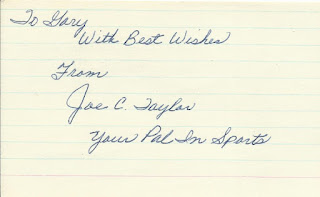 To Gary
With Best Wishes
From
Joe C. Taylor
Your Pal In Sports